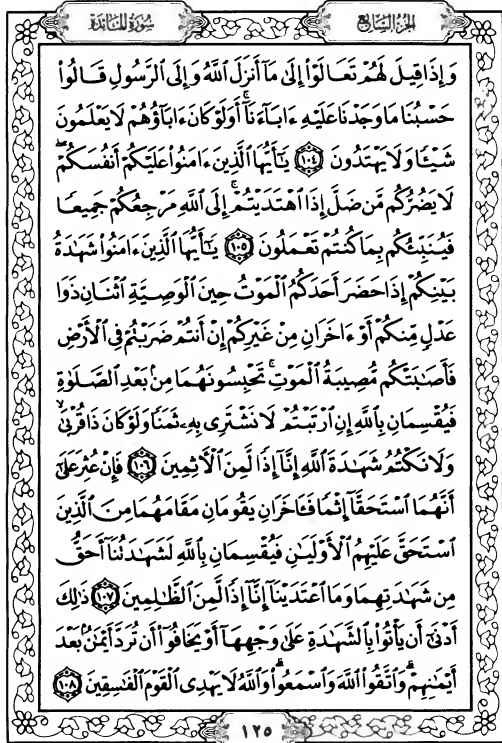 سُورَةُ المَائدَة
الجزء السَّابع
وَإِذَا قِيلَ لَهُمْ تَعَالَوْا۟ إِلَىٰ مَآ أَنزَلَ ٱللَّهُ وَإِلَى ٱلرَّسُولِ قَالُوا۟
حَسْبُنَا مَا وَجَدْنَا عَلَيْهِ ءَابَآءَنَآ ۚ أَوَلَوْ كَانَ ءَابَآؤُهُمْ لَا يَعْلَمُونَ
شَيْـًٔا وَلَا يَهْتَدُونَ ١٠٤ يَـٰٓأَيُّهَا ٱلَّذِينَ ءَامَنُوا۟ عَلَيْكُمْ أَنفُسَكُمْ ۖ
لَا يَضُرُّكُم مَّن ضَلَّ إِذَا ٱهْتَدَيْتُمْ ۚ إِلَى ٱللَّهِ مَرْجِعُكُمْ جَمِيعًا
فَيُنَبِّئُكُم بِمَا كُنتُمْ تَعْمَلُونَ ١٠٥ يَـٰٓأَيُّهَا ٱلَّذِينَ ءَامَنُوا۟ شَهَـٰدَةُ
بَيْنِكُمْ إِذَا حَضَرَ أَحَدَكُمُ ٱلْمَوْتُ حِينَ ٱلْوَصِيَّةِ ٱثْنَانِ ذَوَا
عَدْلٍ مِّنكُمْ أَوْ ءَاخَرَانِ مِنْ غَيْرِكُمْ إِنْ أَنتُمْ ضَرَبْتُمْ فِى ٱلْأَرْضِ
فَأَصَـٰبَتْكُم مُّصِيبَةُ ٱلْمَوْتِ ۚ تَحْبِسُونَهُمَا مِنۢ بَعْدِ ٱلصَّلَوٰةِ
فَيُقْسِمَانِ بِٱللَّهِ إِنِ ٱرْتَبْتُمْ لَا نَشْتَرِى بِهِۦ ثَمَنًا وَلَوْ كَانَ ذَا قُرْبَىٰ ۙ
وَلَا نَكْتُمُ شَهَـٰدَةَ ٱللَّهِ إِنَّآ إِذًا لَّمِنَ ٱلْـَٔاثِمِينَ ١٠٦ فَإِنْ عُثِرَ عَلَىٰٓ
أَنَّهُمَا ٱسْتَحَقَّآ إِثْمًا فَـَٔاخَرَانِ يَقُومَانِ مَقَامَهُمَا مِنَ ٱلَّذِينَ
ٱسْتَحَقَّ عَلَيْهِمُ ٱلْأَوْلَيَـٰنِ فَيُقْسِمَانِ بِٱللَّهِ لَشَهَـٰدَتُنَآ أَحَقُّ
مِن شَهَـٰدَتِهِمَا وَمَا ٱعْتَدَيْنَآ إِنَّآ إِذًا لَّمِنَ ٱلظَّـٰلِمِينَ ١٠٧ ذَٰلِكَ
أَدْنَىٰٓ أَن يَأْتُوا۟ بِٱلشَّهَـٰدَةِ عَلَىٰ وَجْهِهَآ أَوْ يَخَافُوٓا۟ أَن تُرَدَّ أَيْمَـٰنٌۢ بَعْدَ
أَيْمَـٰنِهِمْ ۗ وَٱتَّقُوا۟ ٱللَّهَ وَٱسْمَعُوا۟ ۗ وَٱللَّهُ لَا يَهْدِى ٱلْقَوْمَ ٱلْفَـٰسِقِينَ ١٠٨
١٢٥